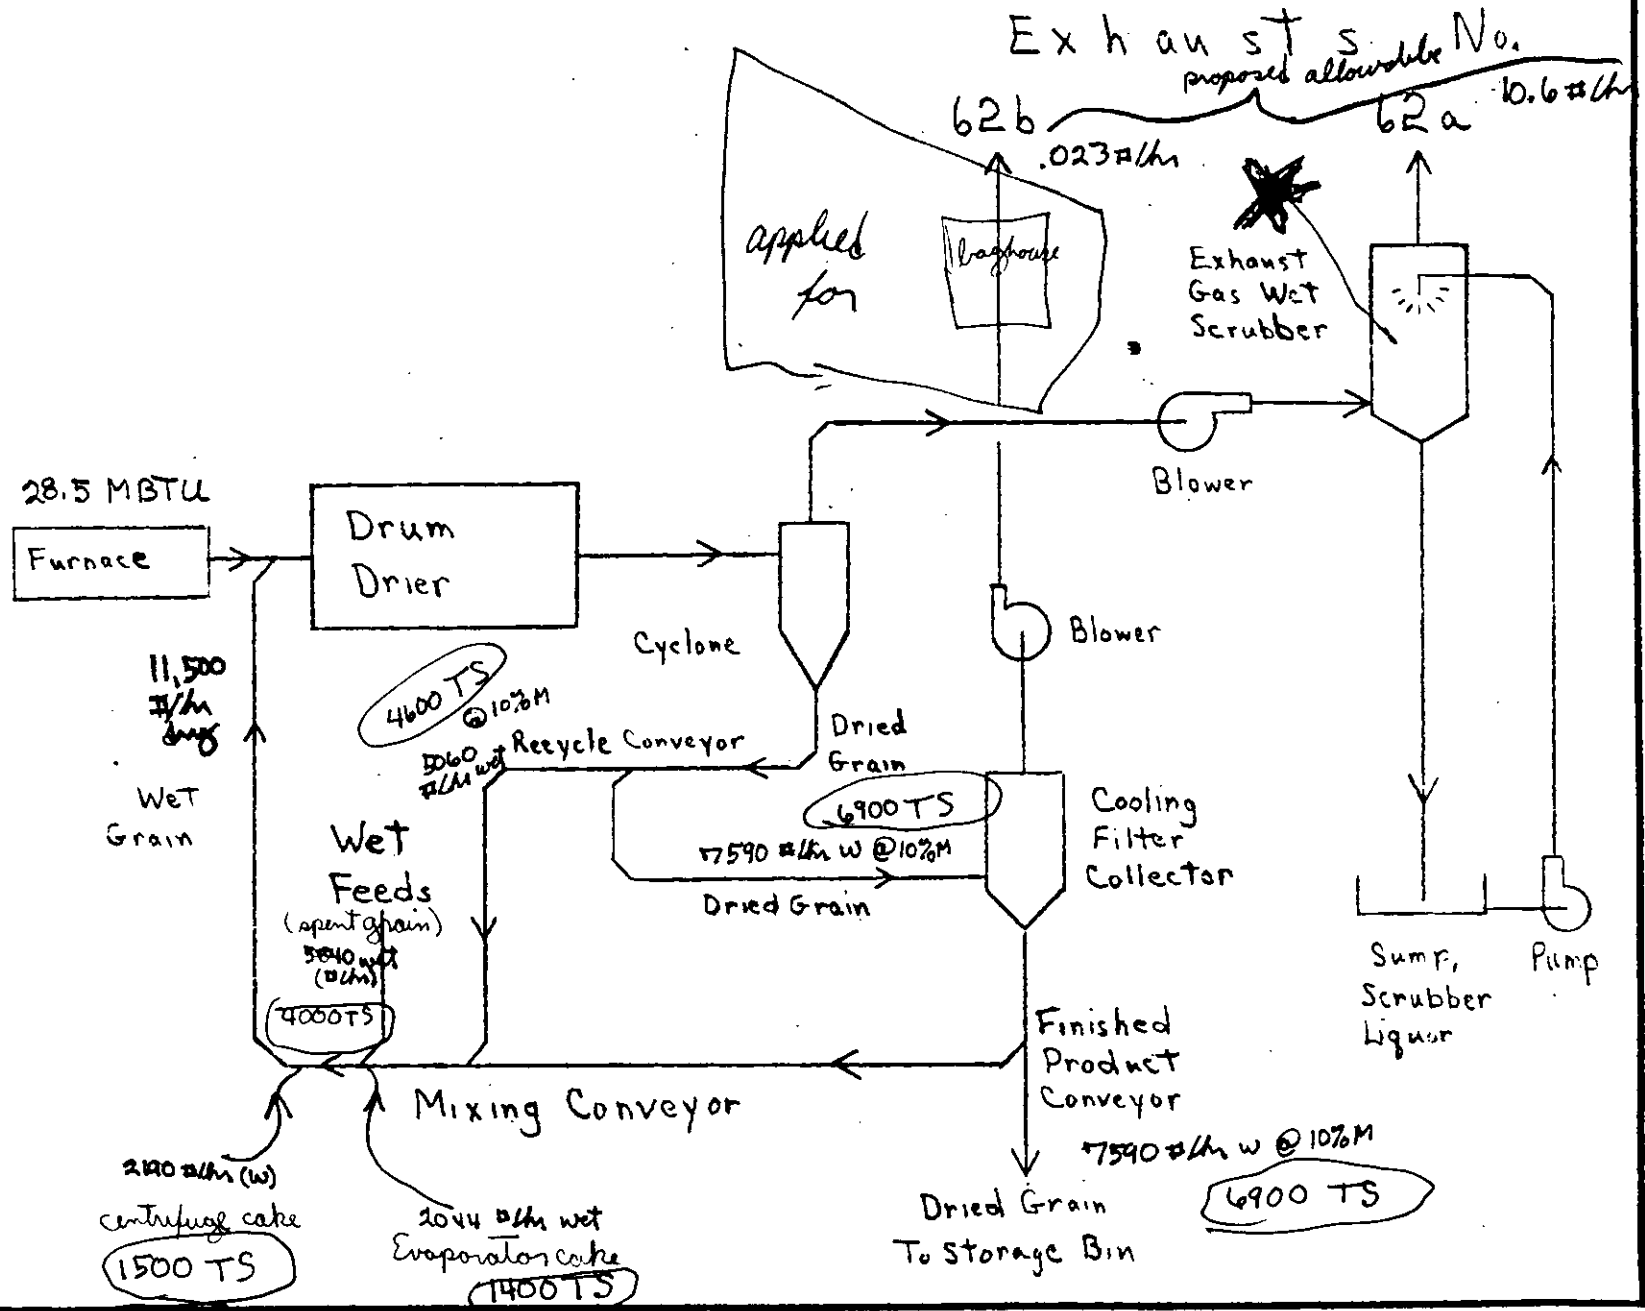 Exhausts No.
proposed allowable
10.6 #/hr
62b
62a
.023 #/hr
applied
for
baghouse
Exhaust
Gas Wet
Scrubber
Blower
28.5 MBTU
Furnace
Drum
Drier
Cyclone
Blower
11,500
#/hr
Wet
Grain
4600 TS
@ 10% M
5060
#/hr wet
Recycle Conveyor
Dried
Grain
6900 TS
7590 #/hr W @ 10% M
Dried Grain
Cooling
Filter
Collector
Wet
Feeds
(spent grain)
5840 wet
(#/hr)
4000 TS
Sump,
Scrubber
Liquor
Pump
Finished
Product
Conveyor
Mixing Conveyor
7590 #/hr W @ 10% M
6900 TS
Dried Grain
To Storage Bin
2190 #/hr (W)
centrifuge cake
1500 TS
2044 #/hr wet
Evaporator cake
1400 TS